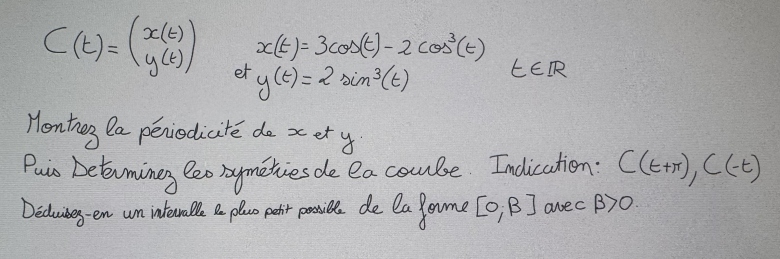 C(t) = (x(t) y(t)) x(t) = 3cos(t) - 2 cos³(t)
et y(t) = 2 sin³(t) t∈ℝ
Montrez la périodicité de x et y.
Puis Determinez les symétries de la courbe. Indication: C(t+π), C(-t)
Déduisez-en un intervalle le plus petit possible de la forme [0,β] avec β>0.